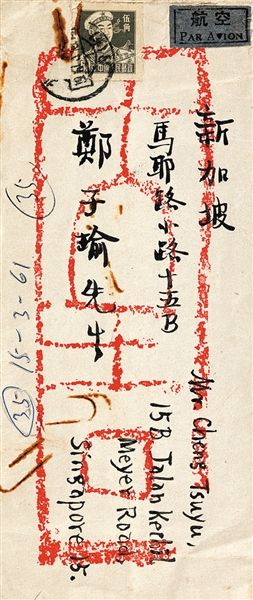 航空
PAR AVION
伍角
新加坡
馬耶路小路十五B
鄭子瑜先生
Mr Cheng Tsuyu,
15B Jalan Kechil
Meyer Road,
Singapore 15.
35
15-3-61
35